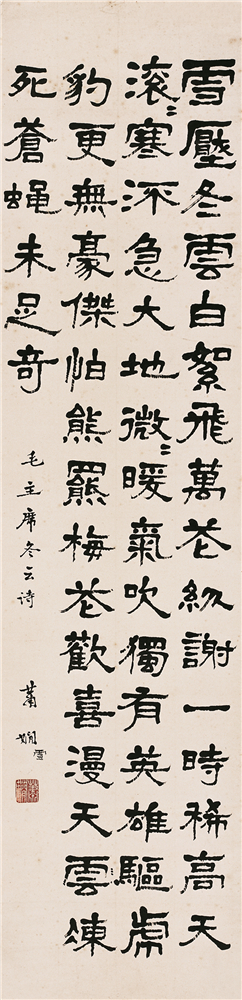 雪壓冬雲白絮飛萬花紛謝一時稀高天
滾〻寒流急大地微〻暖氣吹獨有英雄驅虎
豹更無豪傑怕熊羆梅花歡喜漫天雲凍
死蒼蠅未足奇
毛主席冬云诗
蕭嫻
雪